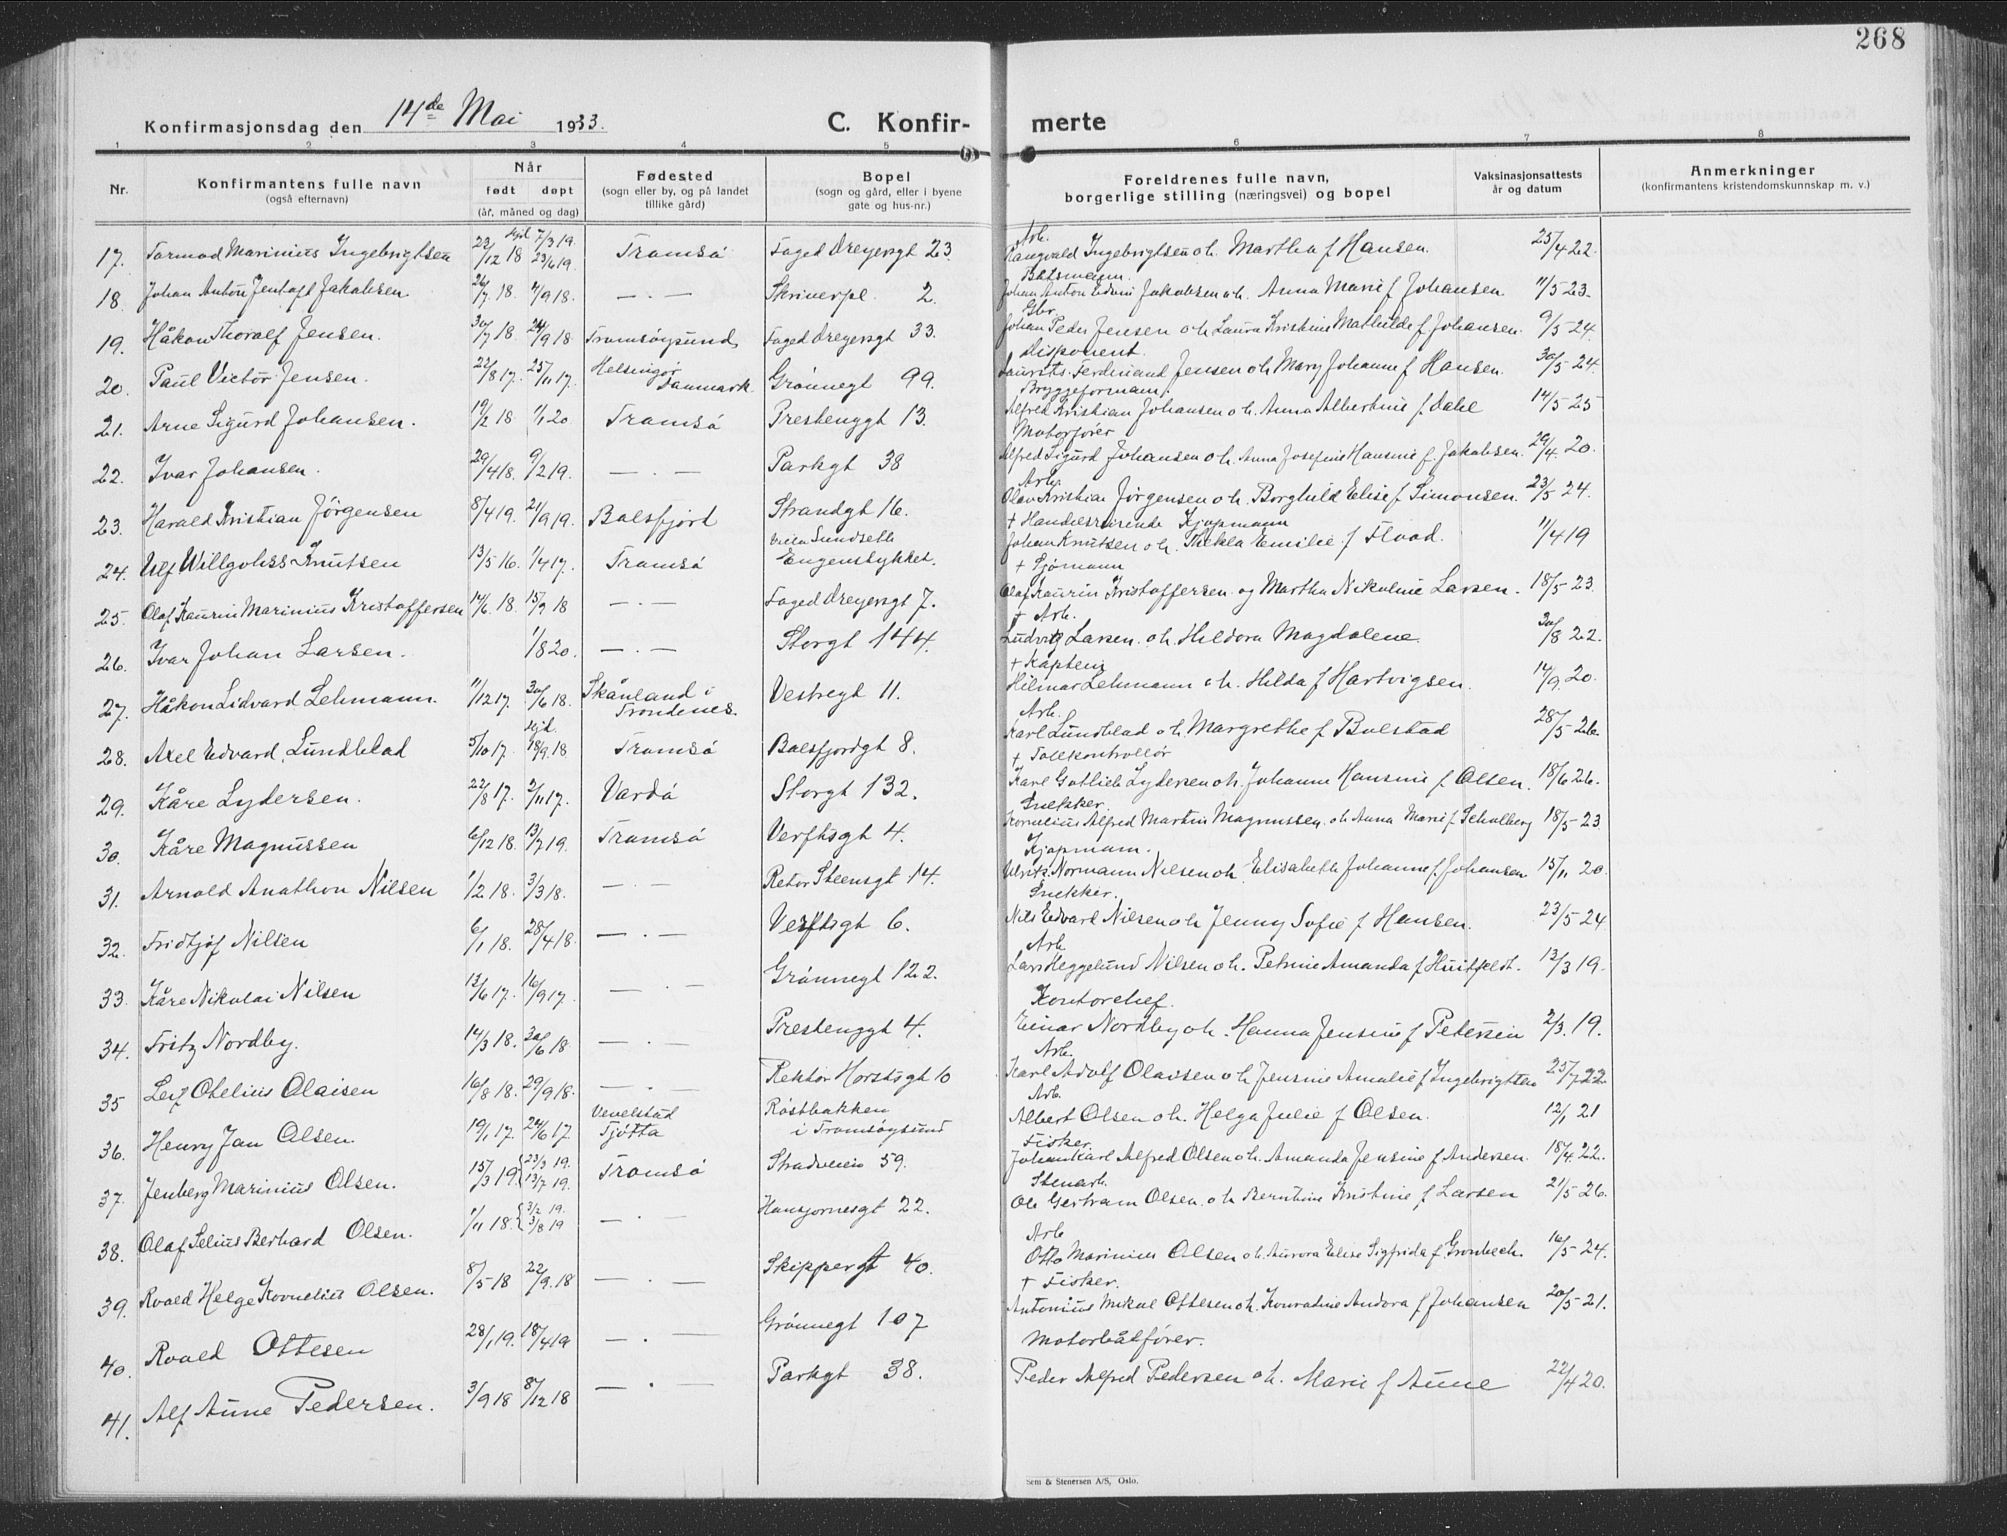 268
Konfirmasjonsdag den 14de Mai 1933.
C. Konfir-
merte
1 2 3 4 5 6 7 8
Nr.
Konfirmantens fulle navn
(også efternavn)
Når
født døpt
(år, måned og dag)
Fødested
(sogn eller by, og på landet
tillike gård)
Bopel
(sogn og gård, eller i byene
gate og hus-nr.)
Foreldrenes fulle navn,
borgerlige stilling (næringsvei) og bopel
Vaksinasjonsattests
år og datum
Anmerkninger
(konfirmantens kristendomskunnskap m. v.)
Arb.
17. Tormod Marinius Ingebrigtsen 23/12 18 hjd 7/3 19. 23/6 19. Tromsø Foged Dreyersgt 23. Rangvald Ingebrigtsen o h. Martha f Hansen. 25/4 22.
Båtsmann.
18. Johan Anton Jentoft Jakobsen 26/7 18. 4/9 18. — . — Skriverpl. 2. Johan Anton Edvin Jakobsen o h. Anna Marie f Johansen 11/5 23.
Gbr.
19. Håkon Thoralf Jensen. 30/7 18. 24/9 18. Tromsøysund Foged Dreyersgt 33. Johan Peder Jensen o h Laura Kristine Mathilde f Johansen. 9/5 24.
Disponent.
20. Paul Victor Jensen. 22/8 17. 25/11 17. Helsingør Danmark. Grønnegt 99. Laurits Ferdinand Jensen o h Mary Johanne f Hansen. 30/5 24.
Bryggeformann.
21. Arne Sigurd Johansen. 19/2 18 1/1 20 Tromsø Prestenggt 13. Alfred Kristian Johansen o h. Anna Albertine f. Dahl 14/5 25
Motorfører
22. Ivar Johansen. 29/4 18. 9/2 19. — . — Parkgt 38 Alfred Sigurd Johansen o h. Anna Josefine Hansine f. Jakobsen. 29/4. 20.
Arb.
23. Harald Kristian Jørgensen 8/4 19. 21/9 19. Balsfjord Strandgt 16. Olav Kristian Jørgensen o h. Borghild Elise f Simonsen. 23/5 24.
† Handelsreisende Kjøpmann
24. Ulf Willgohss Knutsen 13/5 16. 1/4 17. Tromsø Villa Sundseth Engenstykket. Johan Knutsen o h. Thekla Emilie f Flood. 11/4 19
† Sjømann
25. Olaf Kaurin Marinius Kristoffersen 14/6. 18. 15/9 18 — . — Foged Dreyersgt 7. Olaf Kaurin Kristoffersen og Martha Nikoline Larsen. 18/5 23.
† Arb.
26. Ivar Johan Larsen. 1/8 20. — . — Storgt 144. Ludvig Larsen. o h. Hildora Magdalene 30/8 22.
† Kaptein
27. Håkon Lidvard Lehmann. 11/12 17. 30/6 18. Skånland i Trondenes. Vestregt 11. Hilmar Lehmann o h. Hilda f Hartvigsen. 14/9. 20.
Arb.
28. Axel Edvard Lundblad 5/10 17. hjd. 18/9. 18 Tromsø Balsfjordgt 8. Karl Lundblad o h Margrethe f Bolstad 28/5 26.
† Tollkontrollør
29. Kåre Lydersen. 22/8 17. 2/11 17. Vardø Storgt 132. Karl Gotlieb Lydersen o h. Johanne Hansine f Olsen. 18/6 26.
Snekker.
30. Kåre Magnussen 6/12 18. 13/7 19. Tromsø Verftsgt 4. Kornelius Alfred Martin Magnussen. o h Anna Marie f Scholberg 18/5 23
Kjøpmann.
31. Arnold Anathon Nilsen 1/2. 18. 3/3 18. — . — Retor Steensgt 14. Ulrik Normann Nilsen o h. Elisabeth Johanne f. Johansen 15/11 20.
Snekker.
32. Fridtjof Nilsen 6/1 18. 28/4 18. — . — Verftsgt 6. Nils Edvard Nilsen o h Jenny Sofie f Hansen. 23/5 24
Arb
33. Kåre Nikolai Nilsen 12/6 17. 16/9 17. — . — Grønnegt 122. Lars Heggelund Nilsen o h. Petrine Amanda f Huitfeldt. 13/3 19.
Kontorchef.
34. Fritz Nordby. 14/3 18. 30/6 18 — . — Prestenggt 4. Einar Nordby o h. Hanna Jensine f Petersen 2/3. 19.
Arb.
35 Leif Obelius Olaisen 16/8 18. 29/9 18. — . — Rektor Horstsgt 10 Karl Adolf Olaisen o h Jensine Amalie f Ingebrigtsen 25/7 22
Arb.
36. Henry Jan Olsen. 19/1 17. 24/6 17. Vevelstad Tjøtta Røstbakken i Tromsøysund Albert Olsen o h. Helga Julie f Olsen. 12/1 21
Fisker.
37. Jenberg Marinius Olsen. 15/3 19. 23/3 19. 13/7 19. Tromsø Stradveien 59. Johan Karl Alfred Olsen o h. Amanda Jensine f Andersen. 18/4. 22.
Stenarb.
38. Olaf Selius Berhard Olsen. 1/11 18. 3/2 19. 3/8 19 — . — Hansjornesgt 22. Ole Gertram Olsen. o h Berntine Kristine f Larsen 21/5 26.
Arb
39. Roald Helge Kornelius Olsen. 8/5 18 22/9. 18 — . — Skippergt 40. Otto Marinius Olsen o h. Aurora Elise Sigfrida f Grønbech. 16/5 24.
† Fisker.
40. Roald Ottesen 28/1 19. 18/4 19 — . — Grønnegt 107 Antonius Mikal Ottesen o h. Konradine Andora f Johansen 20/5 21.
Motorbåtfører.
41. Alf Aune Pedersen. 3/9 18 8/12 18 — . — Parkgt 38. Peder Alfred Pedersen o h. Marie f Aune 22/4 20.
Sem & Stenersen A/S, Oslo.